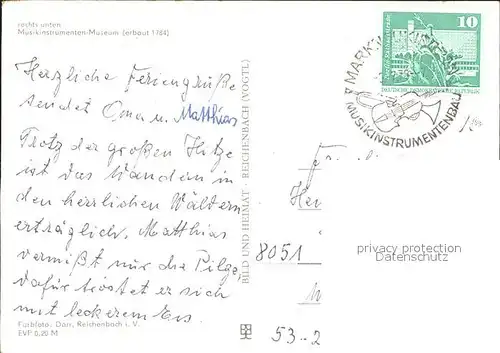 rechts unten:
Musikinstrumenten-Museum (erbaut 1784)
Herzliche Feriengrüße
sendet Oma u. Matthias
Trotz der großen Hitze
ist das Wandern in
den herrlichen Wäldern
erträglich. Matthias
vermißt nur die Pilze,
dafür tröstet er sich
mit leckerem Eis.
Farbfoto: Darr, Reichenbach i. V.
EVP 0,20 M
BILD UND HEIMAT · REICHENBACH (VOGTL)
10
DEUTSCHE DEMOKRATISCHE REPUBLIK
MARKNEUKIRCHEN
MUSIKINSTRUMENTENBAU
8051
53-2
privacy protection
Datenschutz